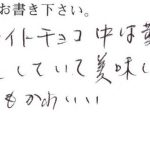 お書き下さい。
イトチョコ中は
していて美味し
もかわいい